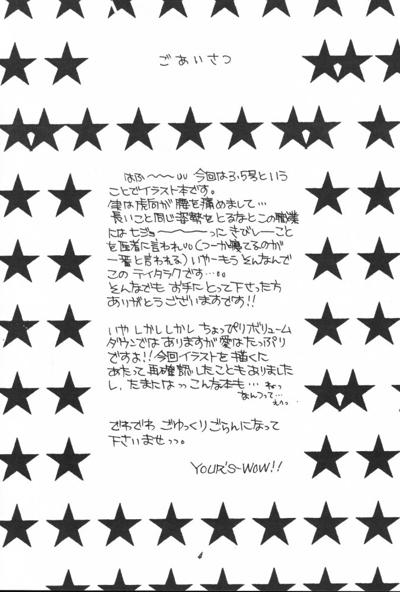 ごあいさつ
はふ〜〜〜υυ 今回は3.5号という
ことでイラスト本です。
実は虎向が腰を痛めまして…
長いこと同じ姿勢をとるなとこの職業
にはナジョ〜〜〜っに きびしーこと
を医者に言われυυ(つーか寝てるのが
一番と言われる)いやーもう そんなんで
この テイタラクです…。。
そんなでも お手にとって下さった方
ありがとう ございますです!!
いや しかし しかし ちょっぴりボリューム
ダウンでは ありますが 愛はたっぷり
ですよ!!今回イラストを描くに
あたって 再確認したことも ありました
し、たまにはっ こんな本も… ねっ
なんつって…
えへっ
でわでわ ごゆっくり ごらんになって
下さいませっっ。
YOUR'S-WOW!!
4